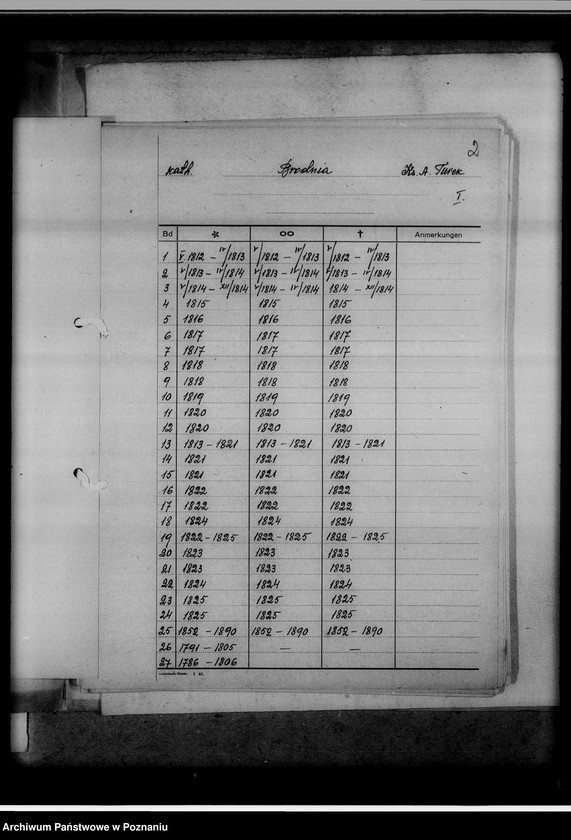 2
kath. Brodnia Ks. A. Turek
I.
Bd * ∞ † Anmerkungen
1 V/1812 – IV/1813 V/1812 – IV/1813 V/1812 – IV/1813
2 V/1813 – IV/1814 V/1813 – IV/1814 V/1813 – IV/1814
3 V/1814 – XII/1814 V/1814 – IV/1814 1814 – XII/1814
4 1815 1815 1815
5 1816 1816 1816
6 1817 1817 1817
7 1817 1817 1817
8 1818 1818 1818
9 1818 1818 1818
10 1819 1819 1819
11 1820 1820 1820
12 1820 1820 1820
13 1813 – 1821 1813 – 1821 1813 – 1821
14 1821 1821 1821
15 1821 1821 1821
16 1822 1822 1822
17 1822 1822 1822
18 1824 1824 1824
19 1822 – 1825 1822 – 1825 1822 – 1825
20 1823 1823 1823
21 1823 1823 1823
22 1824 1824 1824
23 1825 1825 1825
24 1825 1825 1825
25 1852 – 1890 1852 – 1890 1852 – 1890
26 1791 – 1805 — —
27 1786 – 1806
Archiwum Państwowe w Poznaniu